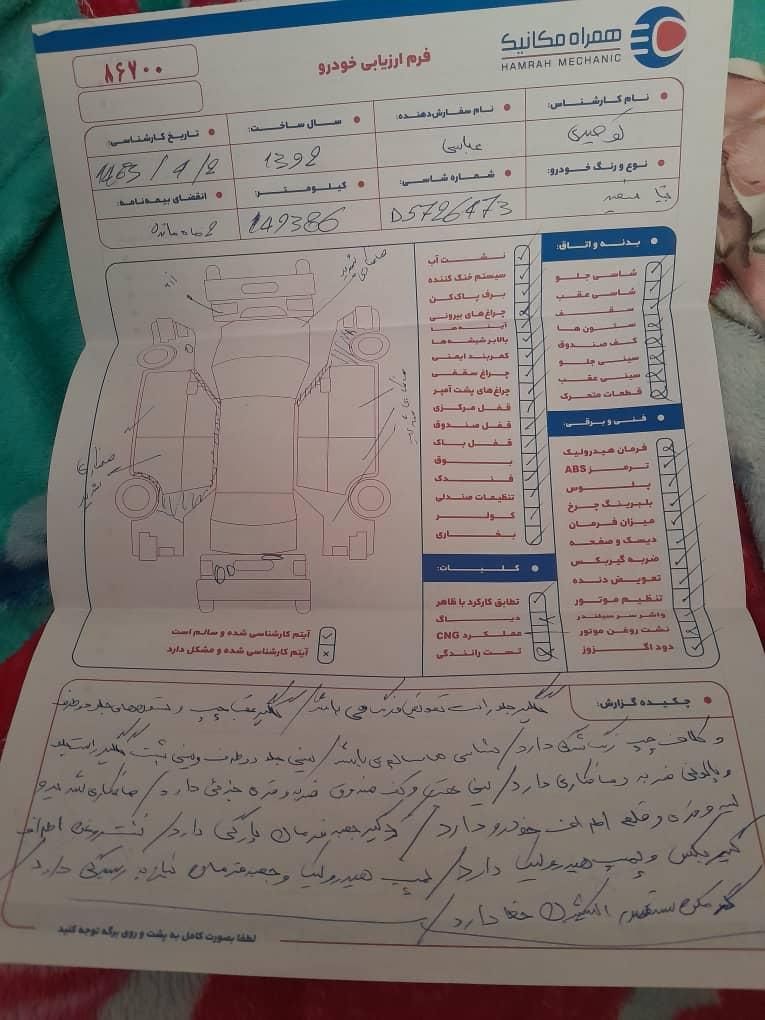 همراه مکانیک
HAMRAH MECHANIC
فرم ارزیابی خودرو
۸۶۷۰۰
نام کارشناس:
نام سفارش‌دهنده:
عباسی
سال ساخت:
1392
تاریخ کارشناسی:
1403 / 9 / 2
نوع و رنگ خودرو:
تیبا سفید
شماره شاسی:
D5726473
کیلومتر:
149386
انقضای بیمه‌نامه:
2 ماه مانده
بدنه و اتاق:
شاسی جلو
شاسی عقب
سقف
ستون ها
کف صندوق
سینی جلو
سینی عقب
قطعات متحرک
فنی و برقی:
فرمان هیدرولیک
ترمز ABS
پلوس
بلبرینگ چرخ
میزان فرمان
دیسک و صفحه
ضربه گیربکس
تعویض دنده
تنظیم موتور
واشر سر سیلندر
نشت روغن موتور
دود اگزوز
نشت آب
سیستم خنک کننده
برف پاک‌کن
چراغ‌های بیرونی
آینه ها
بالابر شیشه ها
کمربند ایمنی
چراغ سقفی
چراغ‌های پشت آمپر
قفل مرکزی
قفل صندوق
قفل باک
بوق
فندک
تنظیمات صندلی
کولر
بخاری
کلیات:
تطابق کارکرد با ظاهر
دیاگ
عملکرد CNG
تست رانندگی
صافکاری
شدید
آیتم کارشناسی شده و سالم است
آیتم کارشناسی شده و مشکل دارد
چکیده گزارش:
گلگیر جلو راست تعویض فرنگاهی می باشد / گلگیر عقب چپ و ستون های جلو دو طرف
و رکاب چپ رنگ شدگی دارد / شاسی ها سالم می باشد / سینی جلو دو طرف و سینی پشت گلگیر راست جلو
و پالونی ضربه و صافکاری دارد / سینی عقب و کف صندوق ضربه و خوردگی جزئی دارد / صافکاری شدید و
اطراف خودرو دارد / درگیر جعبه فرمان پارگی دارد / نشت روغن اطراف
گیربکس و پمپ هیدرولیک دارد / پمپ هیدرولیک و جعبه فرمان نیاز به رسیدگی دارد /
خطا دارد /
لطفا بصورت کامل به پشت و روی برگه توجه کنید